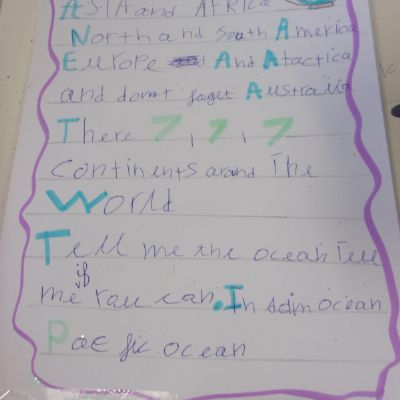 ASIA and AFRICA
North and South America
Europe And Atactica
and dornt foget Australia
There 7, 7, 7
continents around The
World
Tell me the ocean Tell
if
me you can. In adin ocean
Pacific ocean